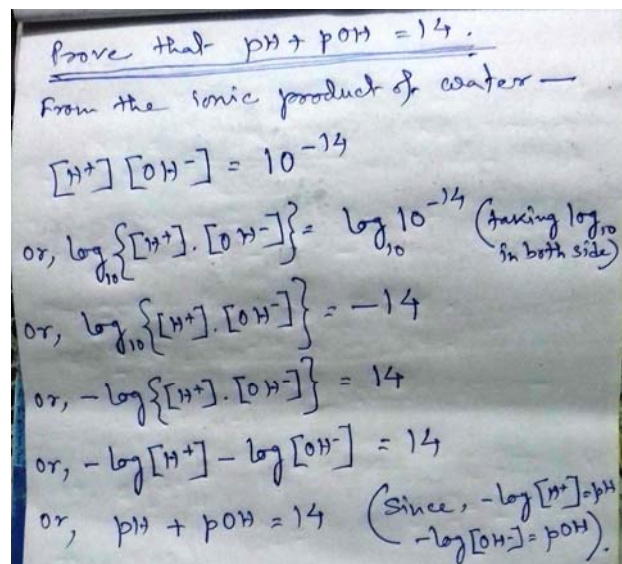 Prove that pH + pOH = 14.
From the ionic product of water —
[H+] [OH-] = 10^-14
or, log10{[H+].[OH-]} = log10 10^-14 (taking log10 in both side)
or, log10{[H+].[OH-]} = -14
or, -log{[H+].[OH-]} = 14
or, -log[H+] - log[OH-] = 14
or, pH + pOH = 14 (Since, -log[H+]=pH
-log[OH-]=pOH).